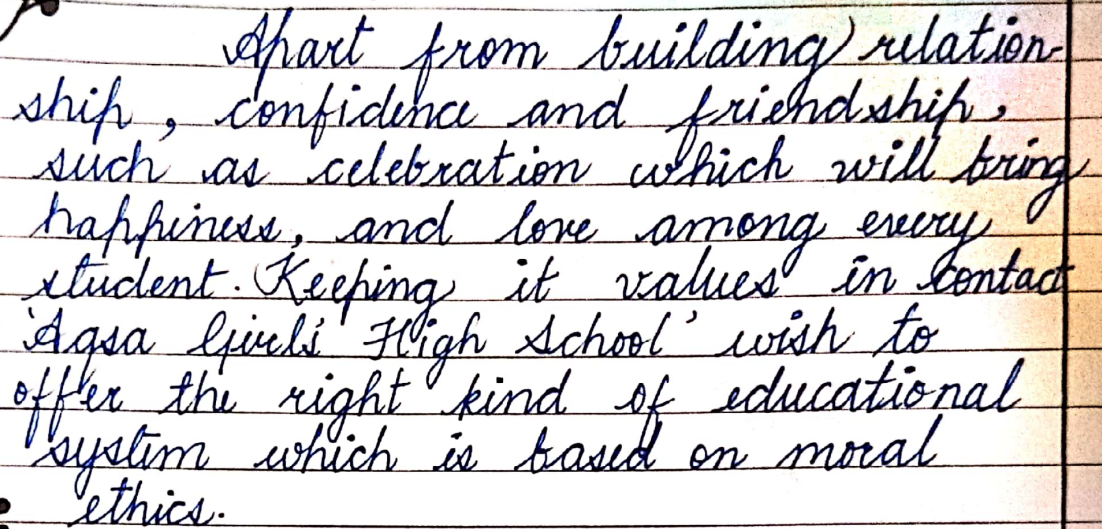 Apart from building relation-
ship, confidence and friendship,
such as celebration which will bring
happiness, and love among every
student. Keeping it values in contact
'Aqsa Girls' High School' wish to
offer the right kind of educational
system which is based on moral
ethics.